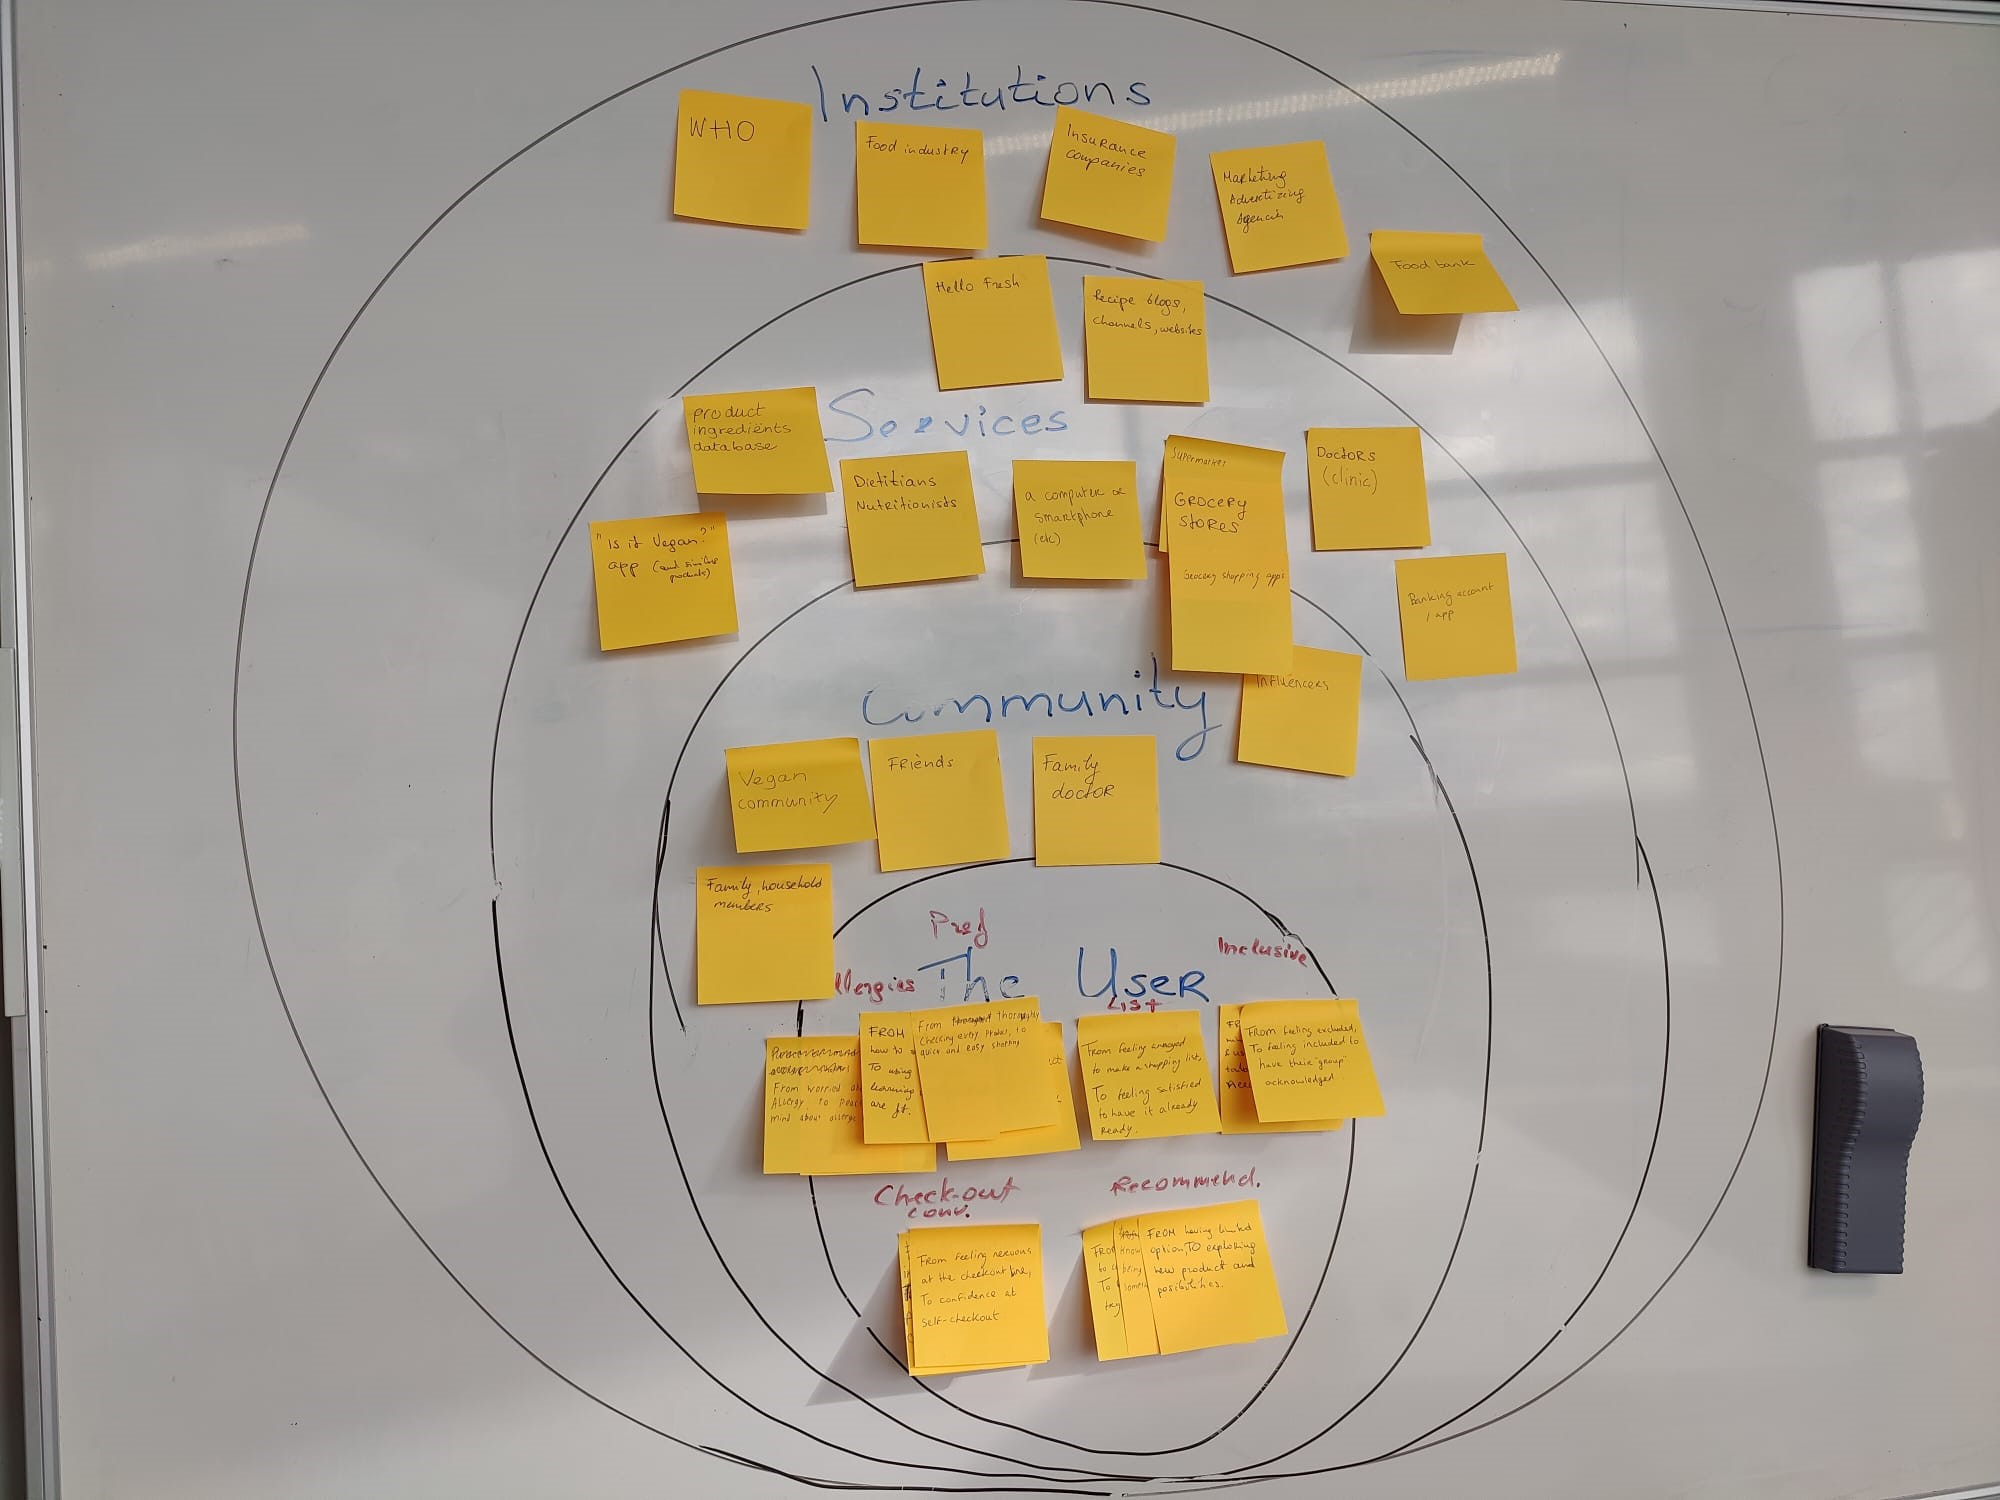 Institutions
WHO
Food industry
Insurance
companies
Marketing
Advertizing
Agencies
Food bank
Hello Fresh
Recipe blogs,
channels, websites
Services
product
ingrediënts
database
Dietitians
Nutritionists
a computer or
smartphone
(etc)
Supermarket
Grocery
stores
Grocery shopping apps
Doctors
(clinic)
"Is it Vegan?"
app (and similar
products)
Banking account
/ app
Community
Influencers
Vegan
community
Friends
Family
doctor
Family, household
members
Pref
Inclusive
llergies
The User
List
From worried ab
Allergy, to peac
mind about allerge
FROM
how to
TO using
learning
are ft.
From thoroughly
checking every product, to
quick and easy shopping
From feeling annoyed
to make a shopping list,
To feeling satisfied
to have it already
ready.
From feeling excluded,
To feeling included to
have their "group"
acknowledged
Check-out
conv.
Recommend.
From feeling nervous
at the checkout line,
To confidence at
self-checkout
FROM having limited
option, TO exploring
new product and
posibilities.